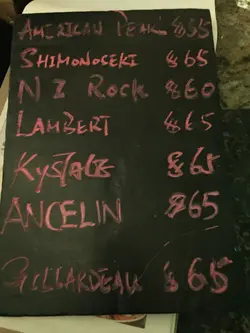 AMERICAN PEAK $55
SHIMONOSEKI $65
NZ ROCK $60
LAMBERT $65
KYSTALE $65
ANCELIN $65
GILLARDEAU $65